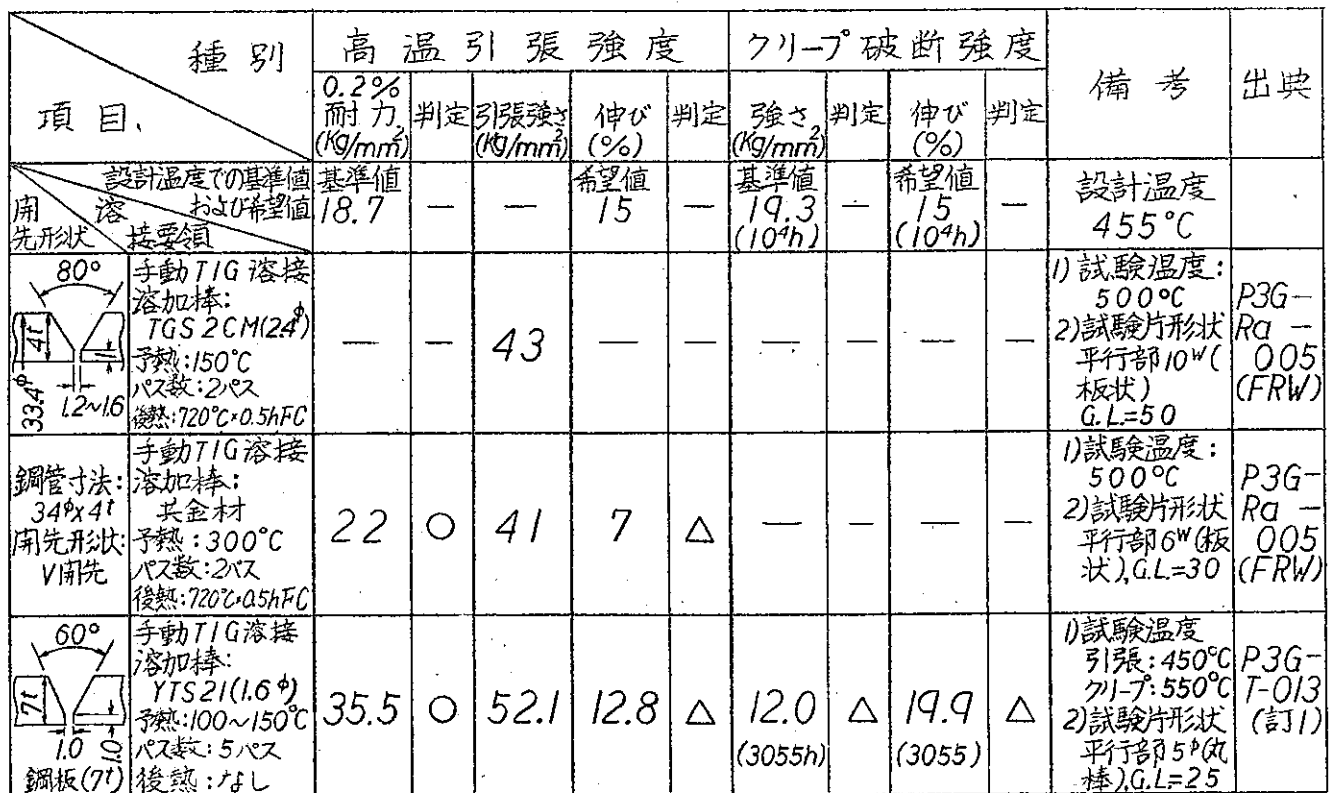 種別
項目.
高温引張強度
クリープ破断強度
備考
出典
0.2%
耐力
(Kg/mm²)
判定
引張強さ
(Kg/mm²)
伸び
(%)
判定
強さ
(Kg/mm²)
判定
伸び
(%)
判定
設計温度での基準値
および希望値
開
先形状
溶
接要領
基準値
18.7
—
—
希望値
15
—
基準値
19.3
(10⁴h)
—
希望値
15
(10⁴h)
—
設計温度
455°C
80°
4t
33.4φ
1
1.2~1.6
手動TIG溶接
溶加棒:
TGS2CM(24φ)
予熱:150°C
パス数:2パス
後熱:720°C×0.5hFC
—
—
43
—
—
—
—
—
—
1)試験温度:
500°C
2)試験片形状
平行部10w(
板状)
G.L.=50
P3G-
Ra-
005
(FRW)
鋼管寸法:
34φx4t
開先形状:
V開先
手動TIG溶接
溶加棒:
共金材
予熱:300°C
パス数:2パス
後熱:720°C×0.5hFC
22
○
41
7
△
—
—
—
—
1)試験温度:
500°C
2)試験片形状
平行部6w(板
状),G.L.=30
P3G-
Ra-
005
(FRW)
60°
7t
1.0
1.0
鋼板(7t)
手動TIG溶接
溶加棒:
YTS21(1.6φ)
予熱:100~150°C
パス数:5パス
後熱:なし
35.5
○
52.1
12.8
△
12.0
(3055h)
△
19.9
(3055)
△
1)試験温度
引張:450°C
クリープ:550°C
2)試験片形状
平行部5φ(丸
棒),G.L.=25
P3G-
T-013
(訂1)